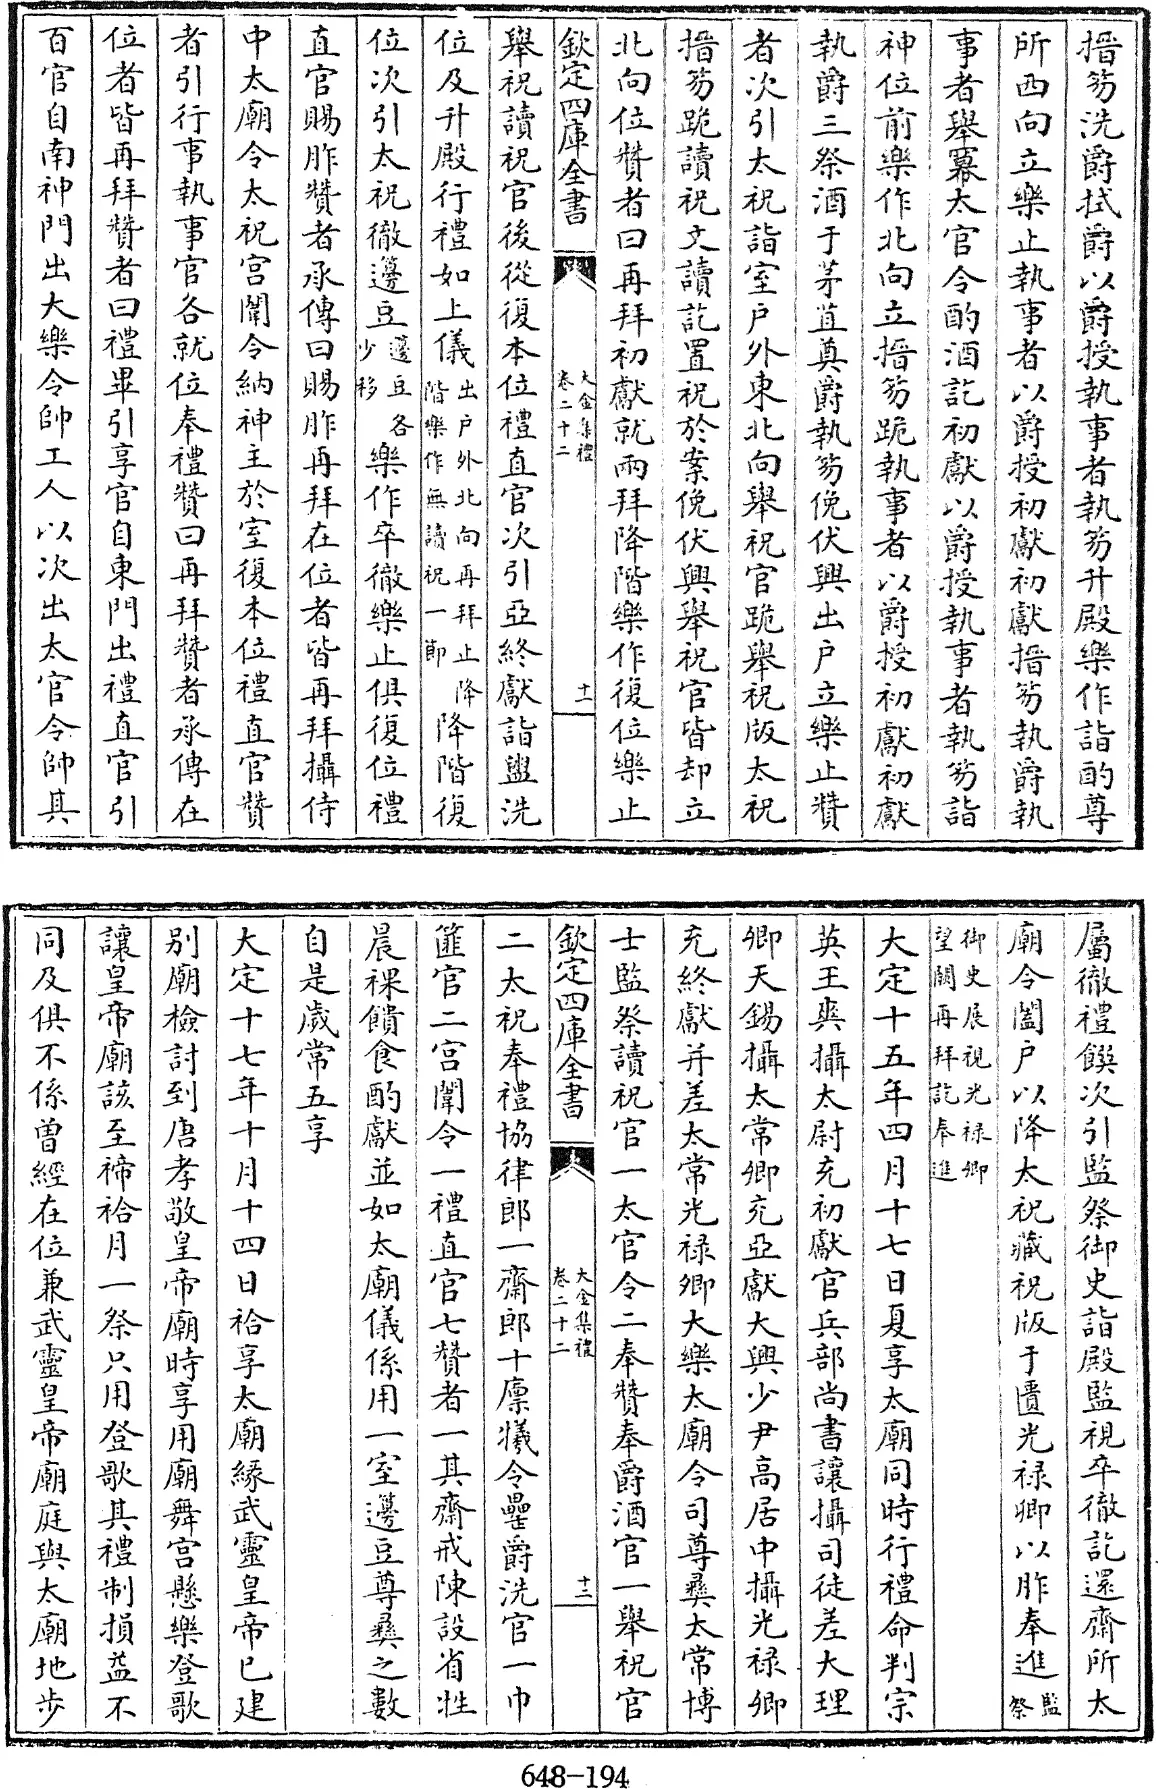 搢笏洗爵拭爵以爵授執事者執笏升殿樂作詣酌尊
所西向立樂止執事者以爵授初獻初獻搢笏執爵執
事者舉冪太官令酌酒訖初獻以爵授執事者執笏詣
神位前樂作北向立搢笏跪執事者以爵授初獻初獻
執爵三祭酒于茅苴奠爵執笏俛伏興出户立樂止贊
者次引太祝詣室户外東北向舉祝官跪舉祝版太祝
搢笏跪讀祝文讀訖置祝於案俛伏興舉祝官皆却立
北向位贊者曰再拜初獻就兩拜降階樂作復位樂止
欽定四庫全書
大金集禮
卷二十二
十一
舉祝讀祝官後從復本位禮直官次引亞終獻詣盥洗
位及升殿行禮如上儀出户外北向再拜止降階樂作無讀祝一節降階復
位次引太祝徹籩豆籩豆各少移樂作卒徹樂止俱復位禮
直官賜胙贊者承傳曰賜胙再拜在位者皆再拜攝侍
中太廟令太祝宫闈令納神主於室復本位禮直官贊
者引行事執事官各就位奉禮贊曰再拜贊者承傳在
位者皆再拜贊者曰禮畢引享官自東門出禮直官引
百官自南神門出大樂令帥工人以次出太官令帥其
屬徹禮饌次引監祭御史詣殿監視卒徹訖還齋所太
廟令闔户以降太祝藏祝版于匱光禄卿以胙奉進監祭
御史展視光禄卿望闕再拜訖奉進
大定十五年四月十七日夏享太廟同時行禮命判宗
英王爽攝太尉充初獻官兵部尚書讓攝司徒差大理
卿天錫攝太常卿充亞獻大興少尹高居中攝光禄卿
充終獻并差太常光禄卿大樂太廟令司尊彝太常博
士監祭讀祝官一太官令二奉贊奉爵酒官一舉祝官
欽定四庫全書
大金集禮
卷二十二
十二
二太祝奉禮協律郎一齋郎十廪犧令罍爵洗官一巾
篚官二宫闈令一禮直官七贊者一其齋戒陳設省牲
晨祼饋食酌獻並如太廟儀係用一室籩豆尊彝之數
自是歲常五享
大定十七年十月十四日祫享太廟緣武靈皇帝已建
别廟檢討到唐孝敬皇帝廟時享用廟舞宫懸樂登歌
讓皇帝廟該至禘祫月一祭只用登歌其禮制損益不
同及俱不係曾經在位兼武靈皇帝廟庭與太廟地步
648-194